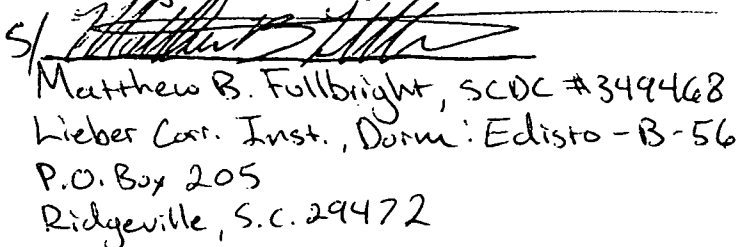 S/
Matthew B. Fullbright, SCDC #349468
Lieber Corr. Inst., Dorm: Edisto-B-56
P.O. Box 205
Ridgeville, S.C. 29472